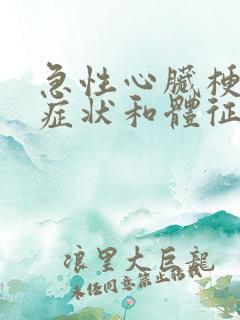 急性心臟梗
症状和體征
浪里大巨龍
未任同意禁止搭载